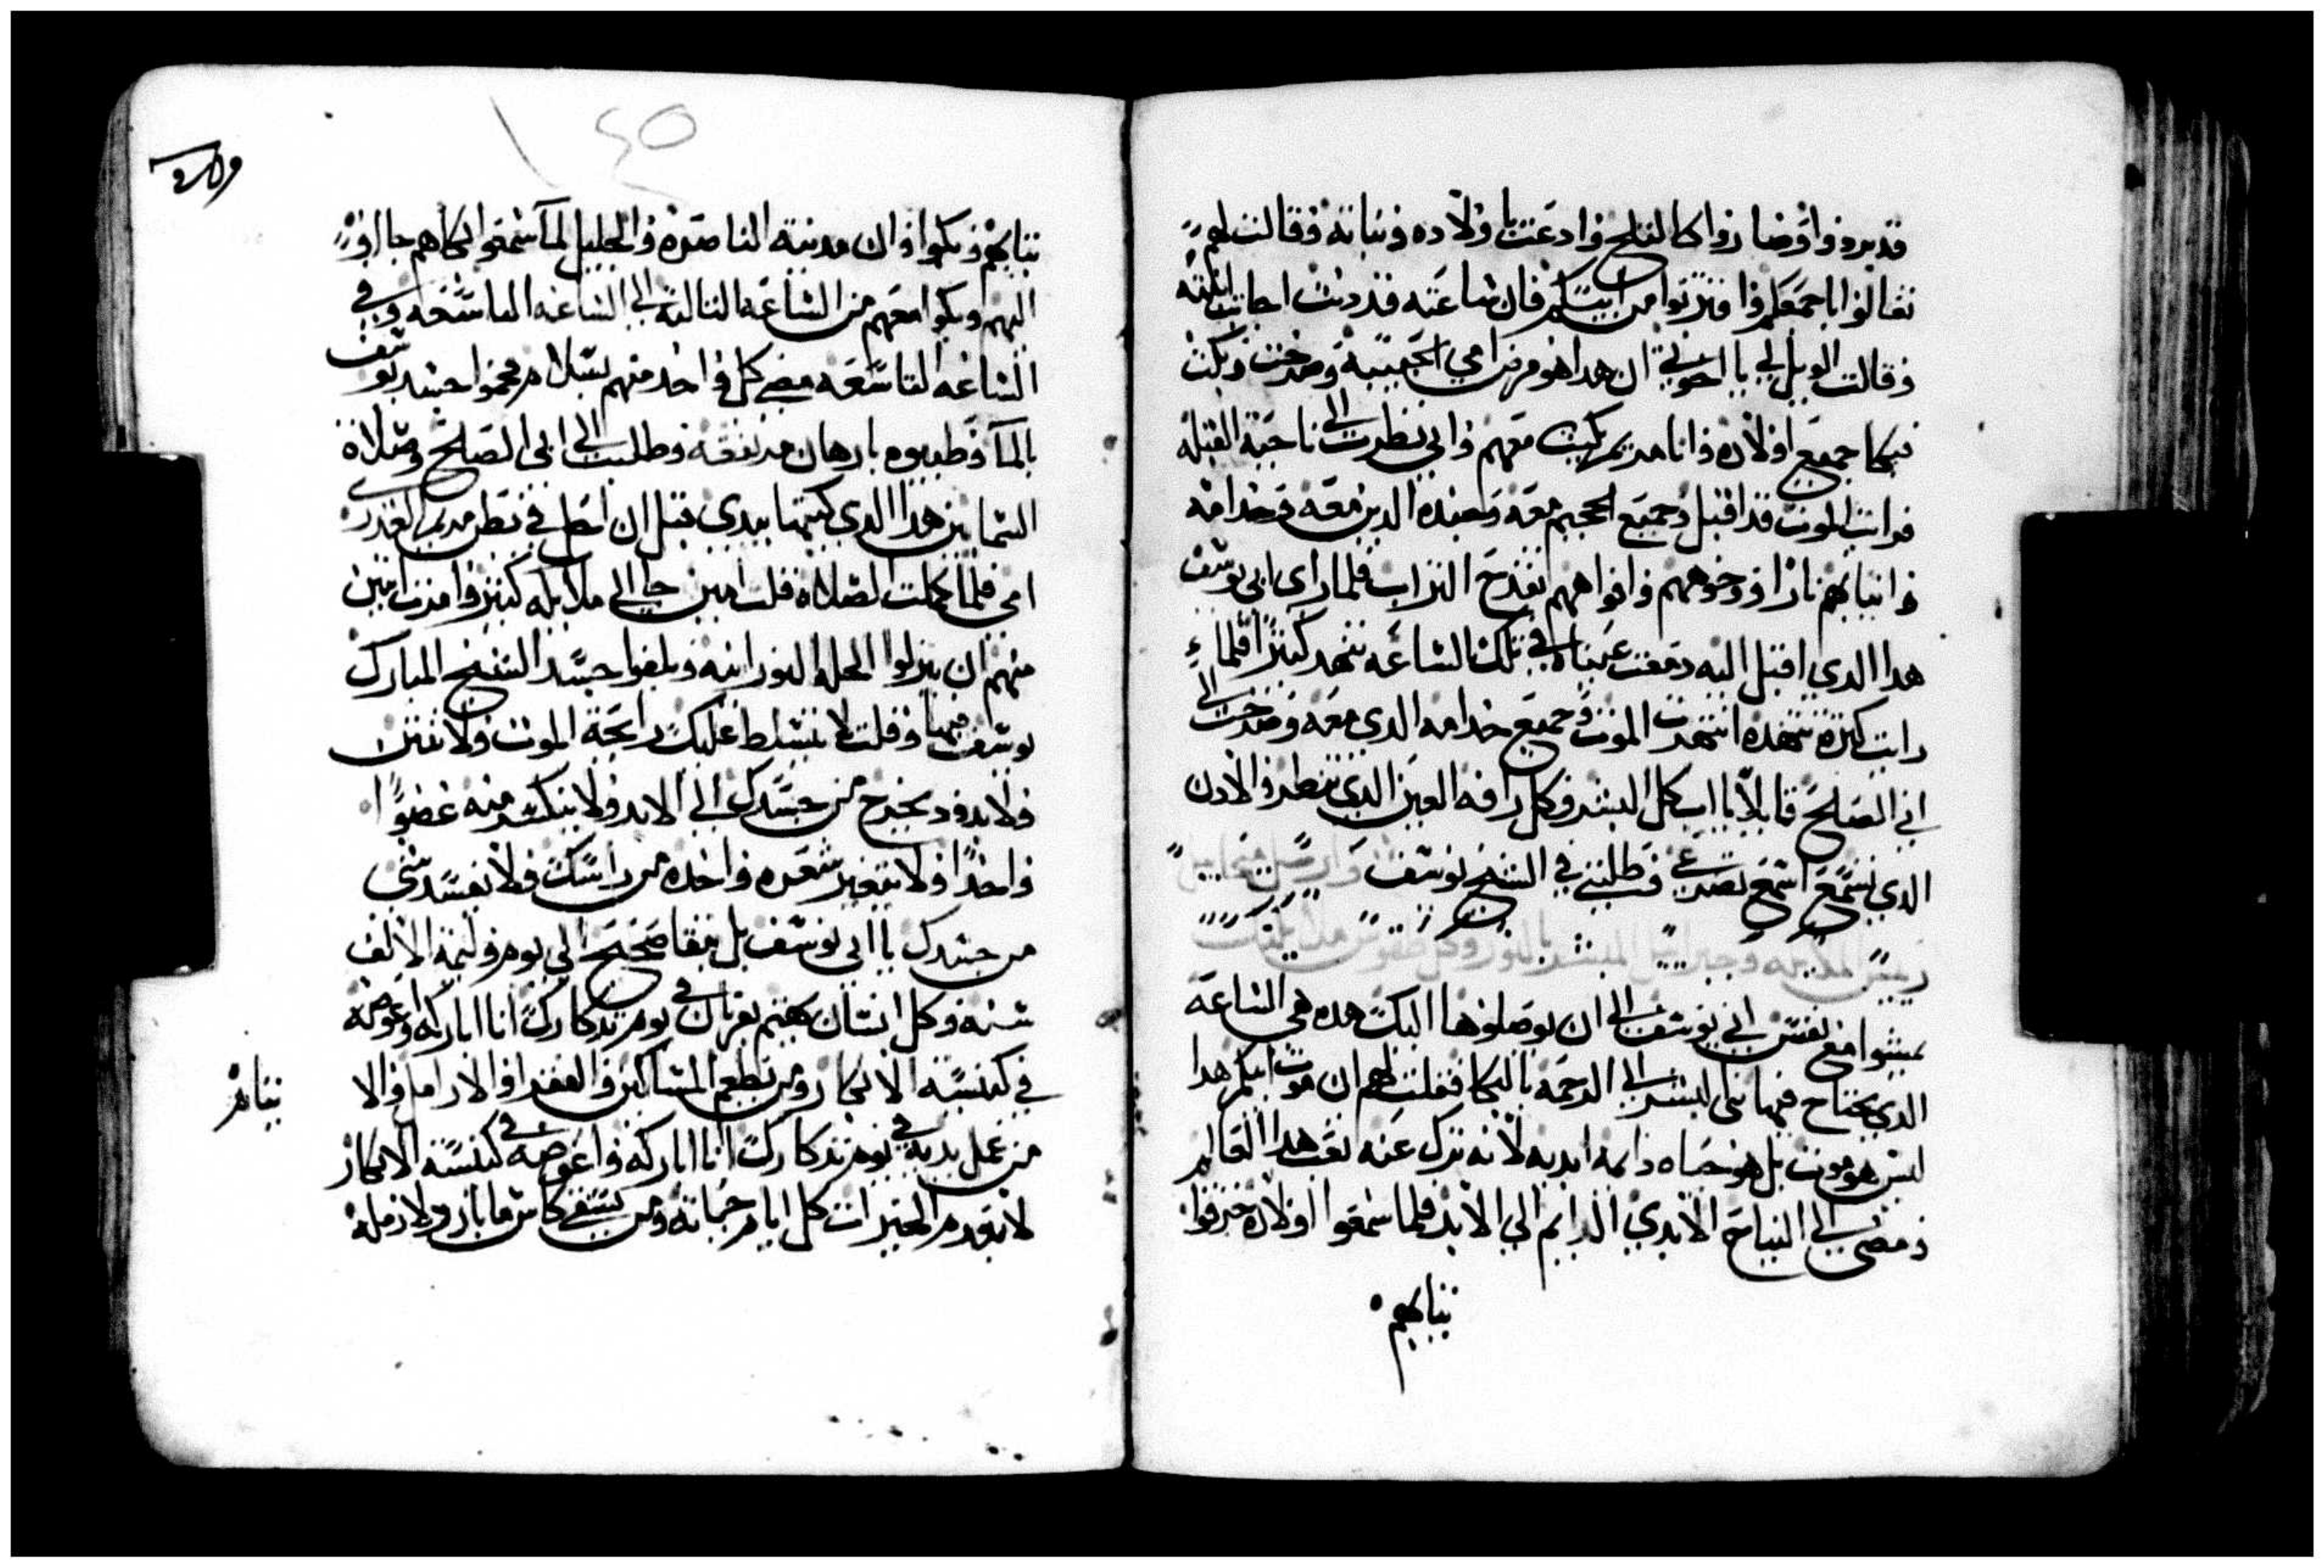 قد بردوا وصاروا كالثلج وادعت باولاده وبناته وقالت لهم
تعالوا باجمعكم وا من ابيكم فان ساعته قد دنت اجابت ابنته
وقالت الويل لي يا اخوتي ان هدا هو مرض امي الحبيبة وصرخت وبكت
فبكا جميع اولاده وانا ومريم بكيت معهم واني نظرت الى ناحية القبله
فرايت الموت قد اقبل وجميع الجحيم معه وجنده الدين معه وخدامه
وانيابهم نارا ووجوههم وافواههم تقدح التراب فلما راى ابي يوسف
هدا الدي اقبل اليه دمعت عيناه في تلك الساعه تنهد كتيرا فلما
رايت كترة تنهده انتهرت الموت وجميع خدامه الدي معه وصرخت الى
ابي الصالح قايلا يا اب كل البشر وكل رافه العين الدي تنظر والادن
الدي تسمع اسمع تضرعي وطلبتي في الشيخ يوسف وارسل ميخاييل
رييس الملايكه وجبراييل المبشر بالنور وكل طقوس ملايكتك
يمشوا مع نفس ابي يوسف الى ان يوصلوها اليك هده هي الساعه
الدي يحتاج فيها ابي يوسف الى الرحمه بالبكا فقلت لهم ان موت ابيكم هدا
ليس هو موت بل هو حياه دايمة ابديه لانه ترك عنه تعب هدا العالم
ومضى الى النياح الابدي الدايم الي الابد فلما سمعوا اولاده خرقوا
ثيابهم
١٤٥
ثيابهم وبكوا وان مدينة الناصره والجليل لما سمعوا البكاهم جااوا
اليهم وبكوا معهم من الساعه التالته الى الساعه التاسعه وفي
الساعه التاسعه مضى كل واحد منهم بسلام جسد يوسف
بالما وطيبوه بادهان مرتفعه وطلبت الى ابي الصالح وصلاة
السماين هدا الدي كتبتها بيدي قبل ان احل في بطن مريم العدرى
امي فلما كملت الصلاه قلت امين جا الى ملايكه كتير وامرت اتنين
منهم ان ينزلوا الحله النورانيه ويلفوا جسد الشيخ المبارك
يوسف فيها وقلت لا تتسلط عليك رايحة الموت ولا تنتن
ولا دود يخرج من جسدك الى الابد ولا ينكسر منه عضوا
واحدا ولا تتغير شعره واحده من راسك ولا يفسد شي
من جسدك يا ابي يوسف بل يبقا صحيح الى يوم وليمة الالف
سنه وكل انسان يهتم بقربان في يوم تدكارك انا اباركه واعوضه
في كنيسة الابكار ومن يطعم المساكين والفقرا والارامل والا
يتام
من عمل يديه في يوم تدكارك انا اباركه واعوضه في كنيسة الابكار
لا يعدم الخيرات كل ايام حياته ومن يسقي كاس ما بارد ولارمله